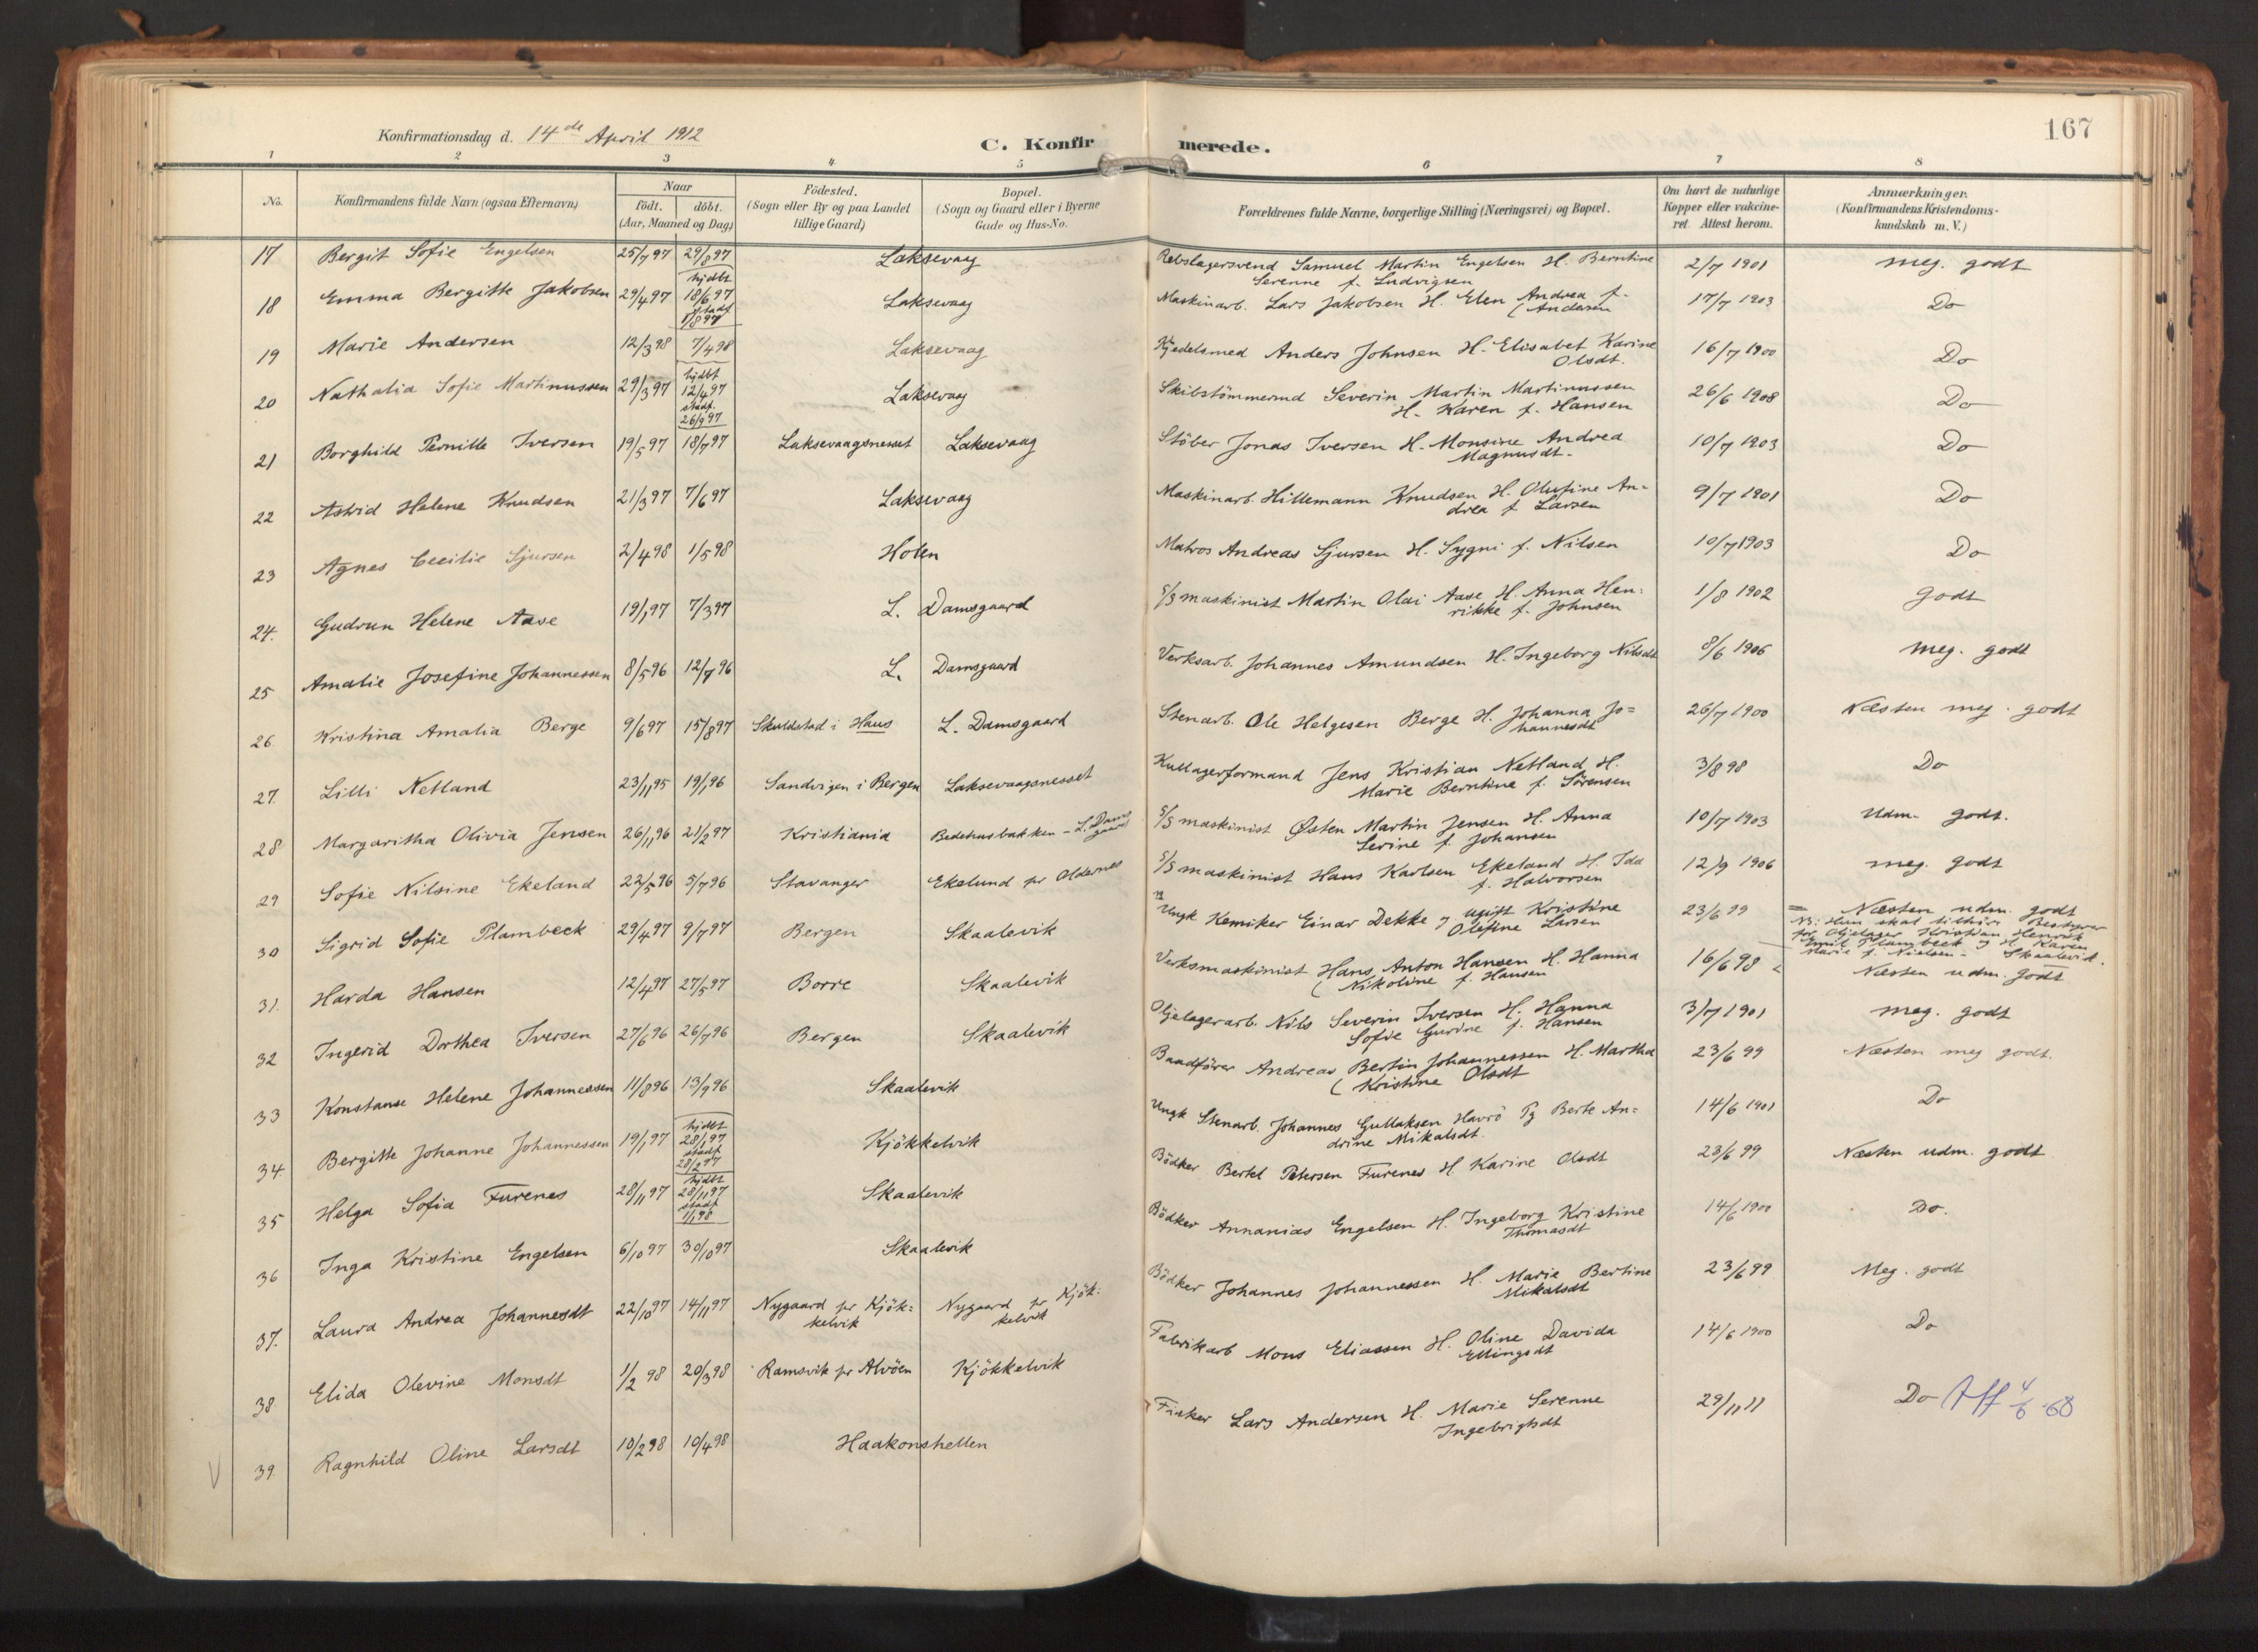 167
Konfirmationsdag d. 14de April 1912
C. Konfirmerede.
1 2 3 4 5 6 7 8
No.
Konfirmandens fulde Navn (ogsaa Efternavn)
Naar
födt. döbt.
(Aar, Maaned og Dag)
Födested.
(Sogn eller By og paa Landet
tillige Gaard)
Bopæl.
(Sogn og Gaard eller i Byerne
Gade og Hus-No.
Forældrenes fulde Navne, borgerlige Stilling (Næringsvei) og Bopæl.
Om havt de naturlige
Kopper eller vakcine-
ret. Attest herom.
Anmærkninger.
(Konfirmandens Kristendoms-
kundskab m. V.)
17 Bergit Sofie Engelsen 25/7 97 29/8 97 Laksevaag Rebslagersvend Samuel Martin Engelsen H. Berntine 2/7 1901 meg. godt
Serenne f. Ludvigsen
18 Emma Bergitte Jakobsen 29/4 97 hjdbt 18/6 97 stadf 1/8 97 Laksevaag Maskinarb. Lars Jakobsen H. Elen Andrea f. 17/7 1903 Do
(Andersen
19 Marie Andersen 12/3 98 7/4 98 Laksevaag Kjedelsmed Anders Johnsen H. Elisabet Karine 16/7 1900 Do
Olsdt.
20 Nathalia Sofie Martinussen 29/3 97 hjdbt 12/4 97 stadf. 26/9 97 Laksevaag Skibstömmermd Severin Martin Martinussen 26/6 1908 Do
H. Karen f. Hansen
21 Borghild Pernille Iversen 19/5 97 18/7 97 Laksevaagsnesset Laksevaag Stöber Jonas Iversen H. Monsine Andrea 10/7 1903 Do
Magnusdt.
22 Astrid Helene Knudsen 21/3 97 7/6 97 Laksevaag Maskinarb. Hillemann Knudsen H. Olufine An- 9/7 1901 Do
drea f. Larsen
23 Agnes Cecilie Sjursen 2/4 98 1/5 98 Holen Matros Andreas Sjursen H. Sygni f. Nilsen 10/7 1903 Do
24. Gudrun Helene Aase 19/1 97 7/3 97 L. Damsgaard S/S maskinist Martin Olai Aase H. Anna Hen- 1/8 1902 godt
rikke f. Johnsen
25 Amalie Josefine Johannessen 8/5 96 12/7 96 L. Damsgaard Verksarb. Johannes Amundsen H. Ingeborg Nilsdt 8/6 1906 meg. godt
26. Kristina Amalia Berge 9/6 97 15/8 97 Skuldstad i Haus L. Damsgaard Stenarb. Ole Helgesen Berge H. Johanna Jo= 26/7 1900 Næsten meg. godt
hannesdt
27. Lilli Netland 23/11 95 19/1 96 Sandvigen i Bergen Laksevaagsnesset Kullagerformand Jens Kristian Netland H. 3/8 98 Do
Marie Berntine f. Sörensen
28 Margaritha Olivia Jensen 26/11 96 21/2 97 Kristiania Bedehusbakken - L. Dams gaard S/S maskinist Østen Martin Jensen H. Anna 10/7 1903 Udm. godt.
Serine f. Johansen
29 Sofie Nilsine Ekeland 22/5 96 5/7 96 Stavanger Ekelund pr Oldernes S/S maskinist Hans Karlsen Ekeland H. Ida 12/9 1906 meg. godt
f. Halvorsen
30 Sigrid Sofie Plambeck 29/4 97 9/7 97 Bergen Skaalevik Ungk Kemiker Einar Dekke og ugift Kristine 23/6 99 = Næsten udm. godt
Olefine Larsen
NB: Hun skal tilhöre Bestyrer
for Oljelager Kristian Henrik
Emil Plambeck og H. Karen
Marie f. Nielsen - Skaalevik.
31. Harda Hansen 12/4 97 27/5 97 Borre Skaalevik Verksmaskinist Hans Anton Hansen H. Hanna 16/6 98 Næsten udm. godt
(Nikoline f. Hansen
32 Ingerid Dorthea Iversen 27/6 96 26/7 96 Bergen Skaalevik Oljelagerarb. Nils Severin Iversen H. Hanna 3/7 1901 meg. godt
Sofie Gurine f. Hansen
33 Konstanse Helene Johannessen 11/8 96 13/9 96 Skaalevik Baadförer Andreas Bertin Johannessen H. Martha 23/6 99 Næsten meg godt.
(Kristine Olsdt
34. Bergitte Johanne Johannessen 19/1 97 hjdbt 28/1 97 stadf 28/2 97 Kjökkelvik Ungk Stenarb. Johannes Gullaksen Havrö Pg Berte An= 14/6 1901 Do
drine Mikalsdt.
35 Helga Sofia Furenes 28/11 97 hjdbt 28/11 97 stadf 1/1 98 Skaalevik Bödker Bertel Petersen Furenes H. Karine Olsdt 23/6 99 Næsten udm. godt
36 Inga Kristine Engelsen 6/10 97 30/10 97 Skaalevik Bödker Annanias Engelsen H. Ingeborg Kristine 14/6 1900 Do.
Thomasdt
37. Laura Andrea Johannesdt 22/10 97 14/11 97 Nygaard pr Kjök= kelvik Nygaard pr Kjök= kelvik Bödker Johannes Johannessen H. Marie Bertine 23/6 99 Meg. godt
Mikalsdt
38 Elida Olevine Monsdt 1/2 98 20/3 98 Ramsvik pr Alvöen Kjökkelvik Fabrikarb Mons Eliassen H. Oline Davida 14/6 1900 Do
Ellingsdt
39. Ragnhild Oline Larsdt 10/2 98 10/4 98 Haakonshellen Fisker Lars Andersen H. Marie Serenne 29/11 11 Do Aff 4/6-68
Ingebrigtsdt